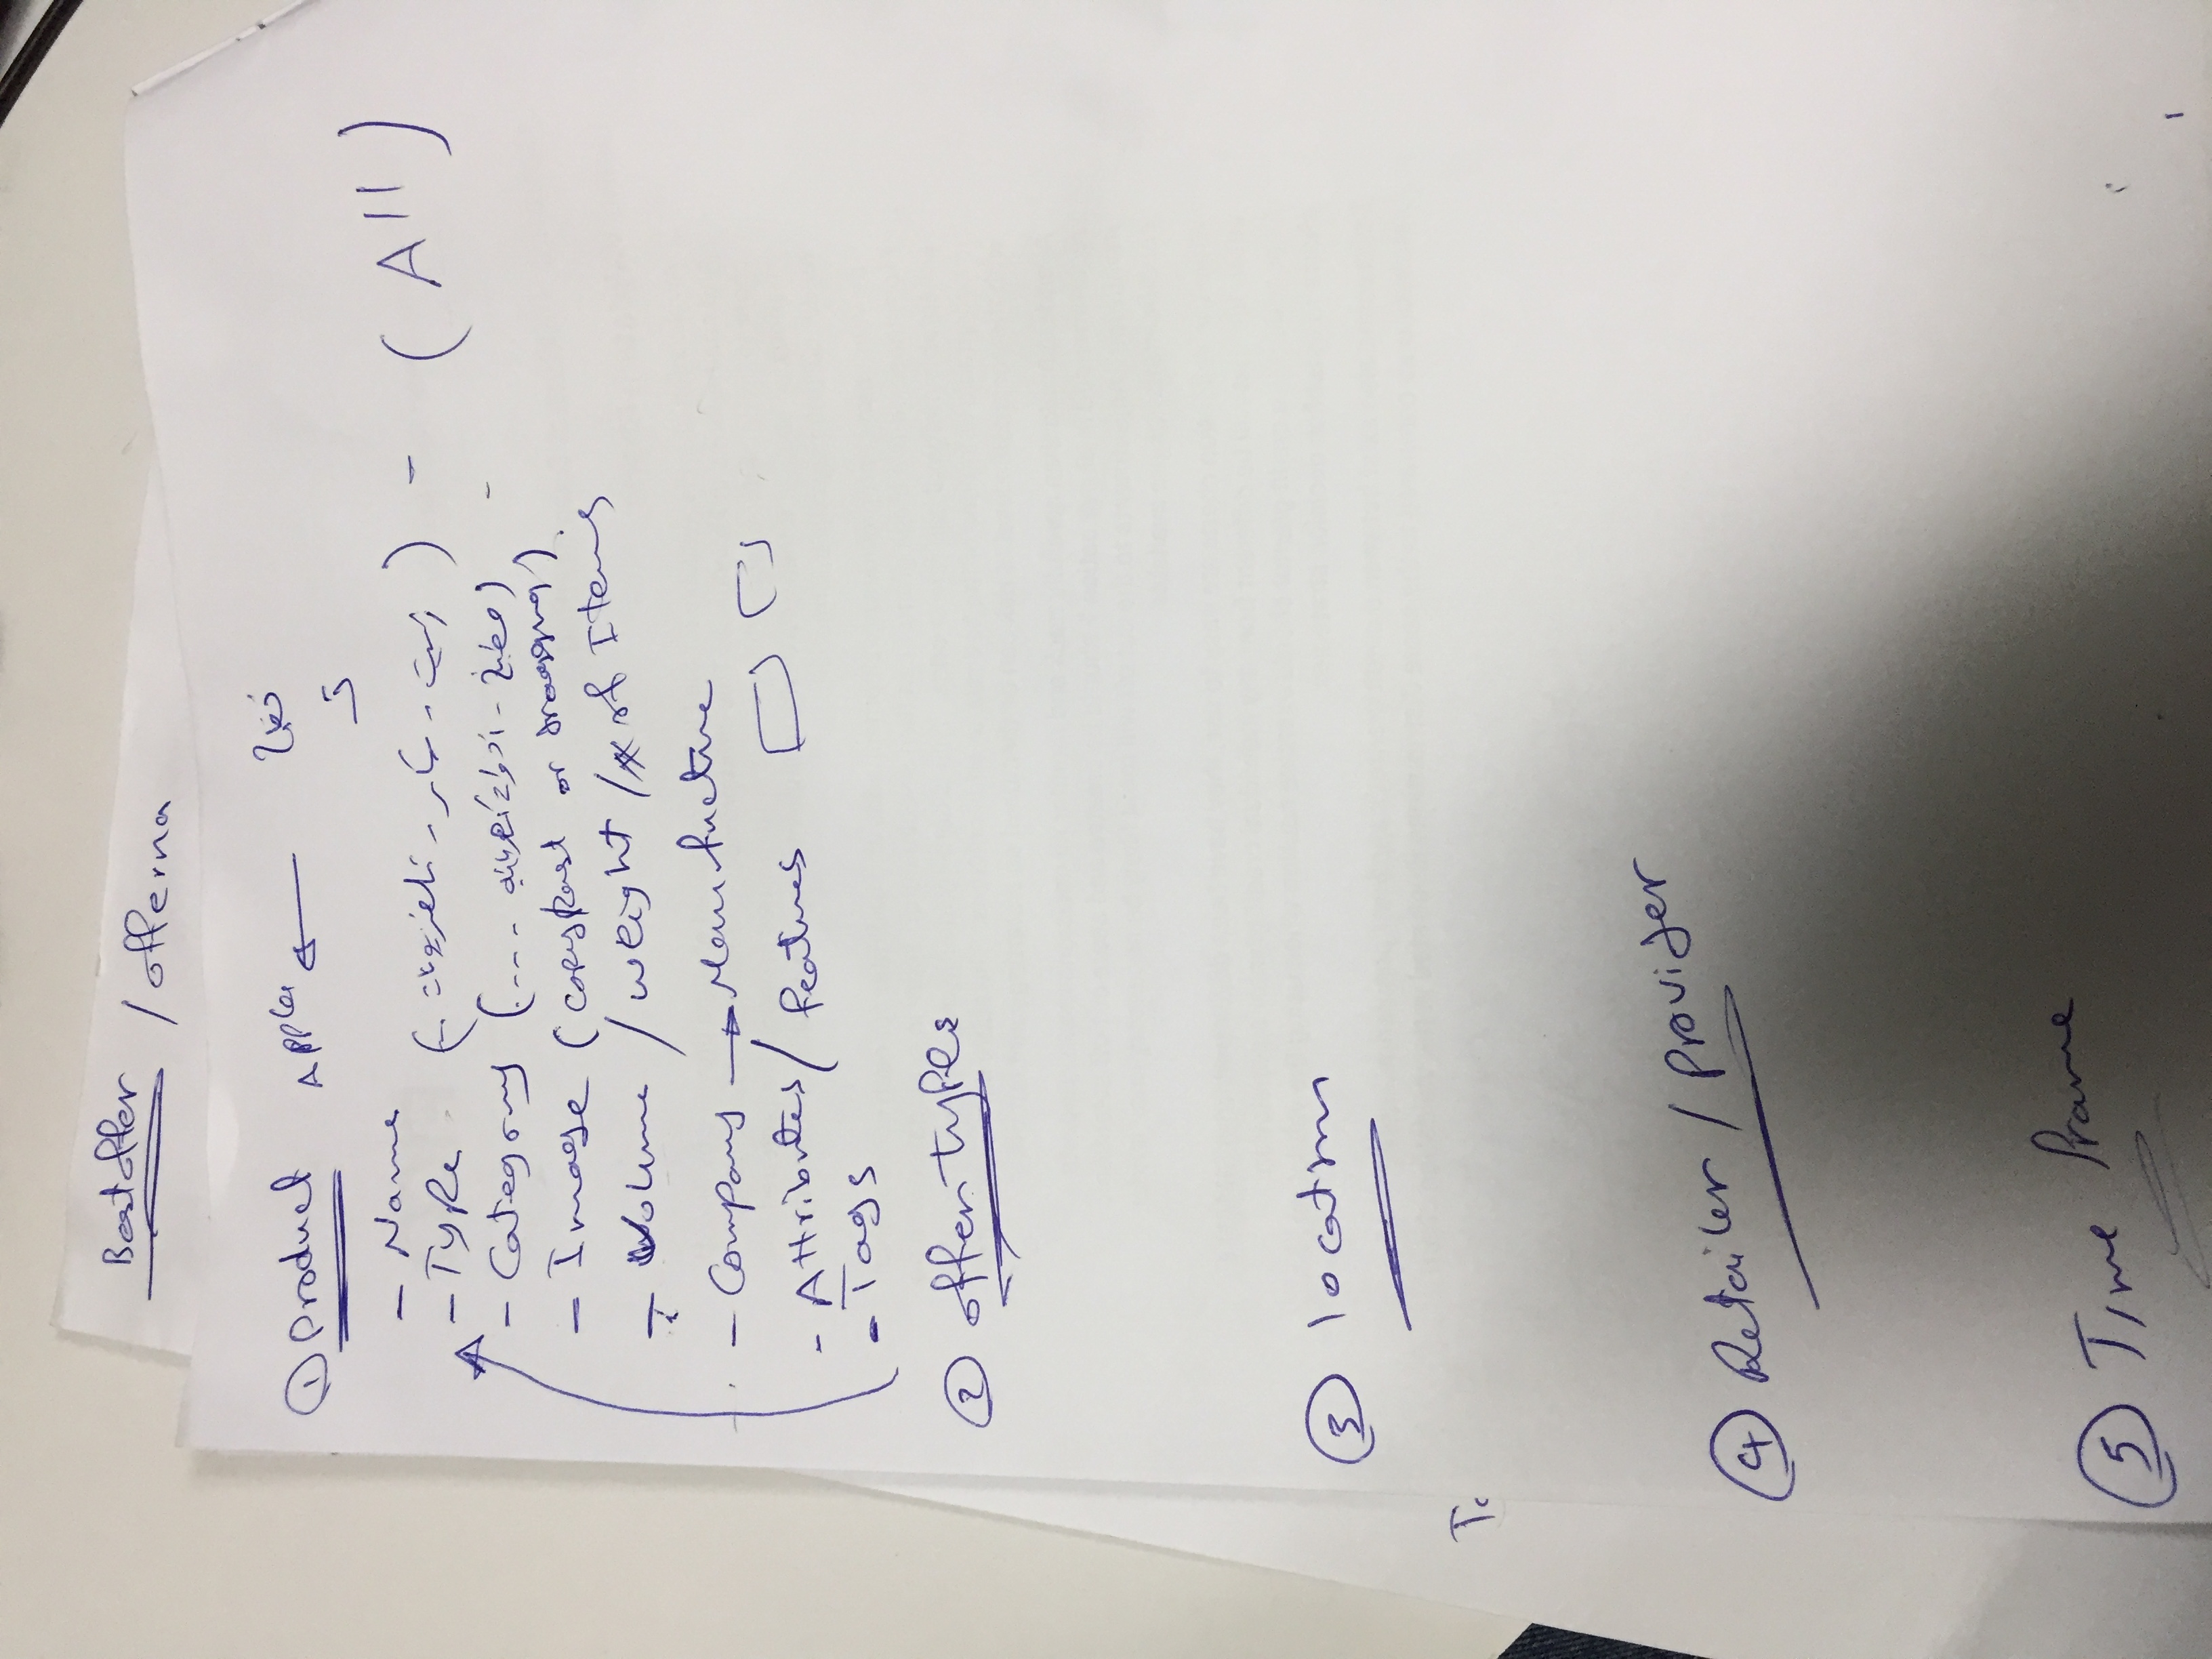 Best offer / offerna
① Product Apple ← تفاح
- Name
- Type (زيت - سكر - تلفزيونات ...) - (All)
- Category (مطبخ - أدوات كهربائية ....) -
- Image (copy/past or dragging)
- Volume / weight / # of Items
- Company → Manufacture
- Attributes / features
- Tags
② offer types
③ location
To
④ Retailer / provider
⑤ Time frame